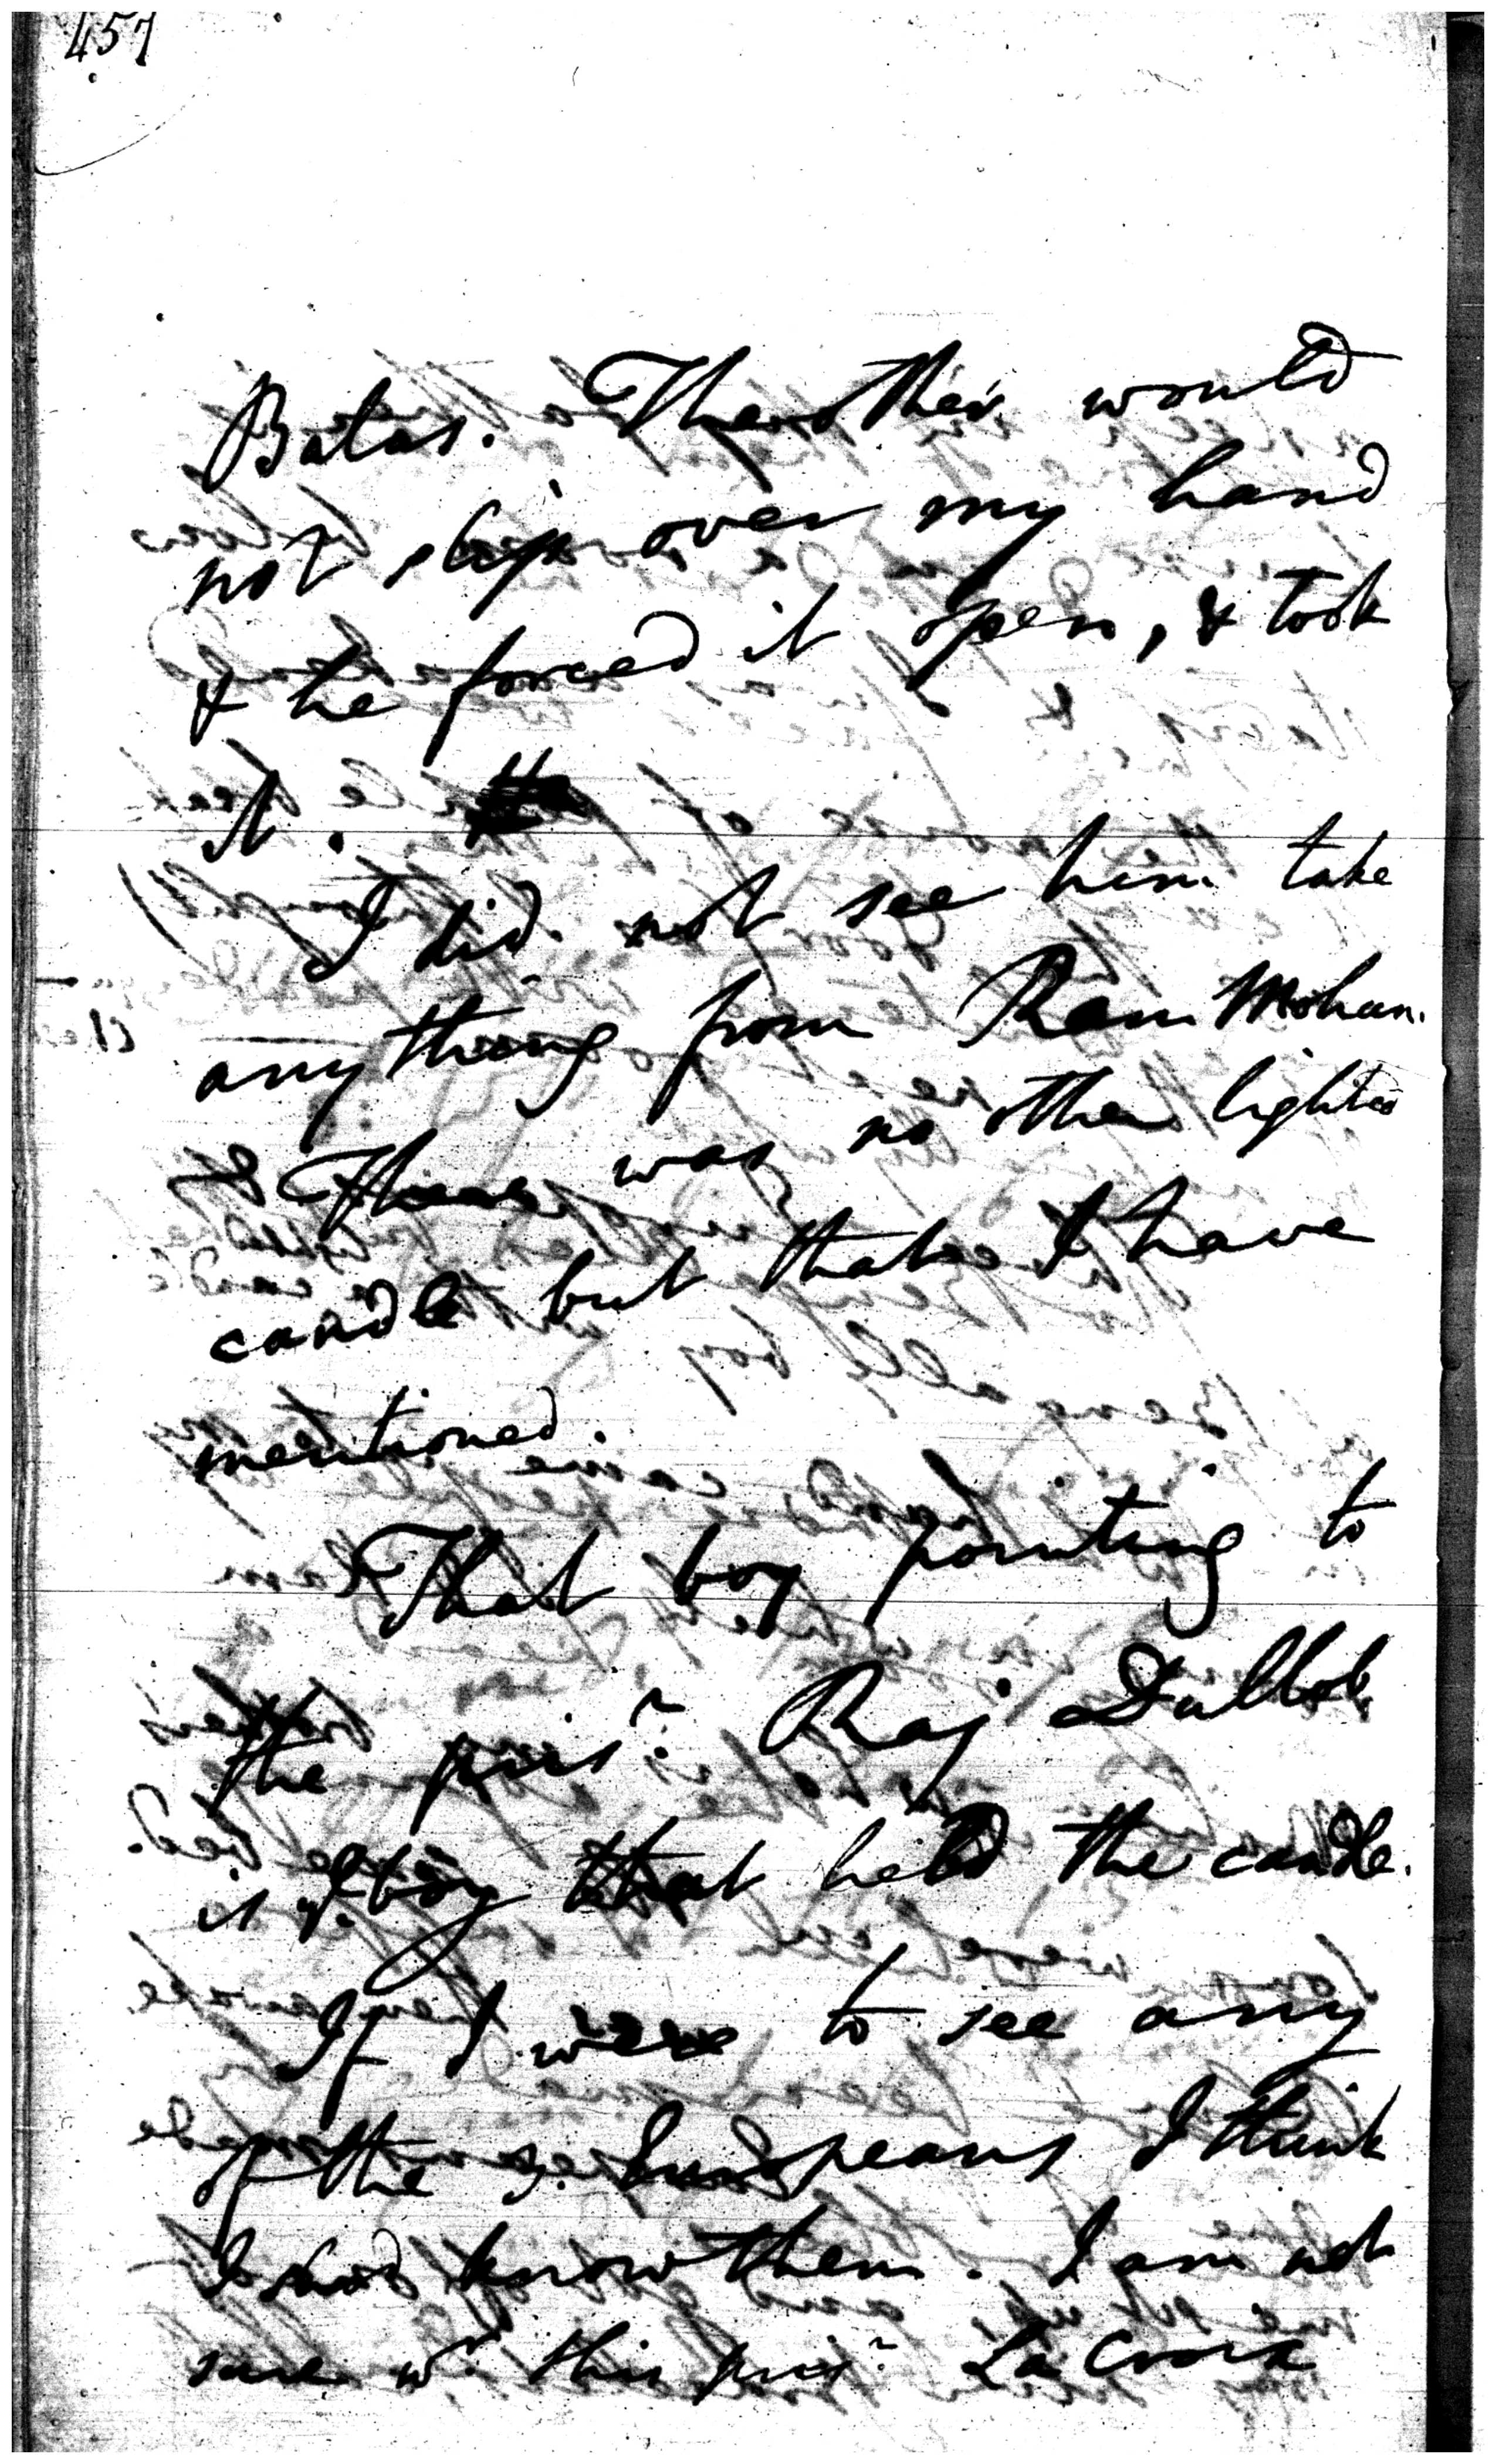 457
Batas. The other would
not slip over my hand
& he forced it open, & took
it.
I did not see him take
anything from Ram Mohan.
& There was no other lighted
candle but that I have
mentioned.
That boy pointing to
the pris.r Raj Dullob
is ye boy that held the candle.
If I were to see any
of the 3. Europeans I think
I shod know them. I am not
sure wr. this prisr. La Croix